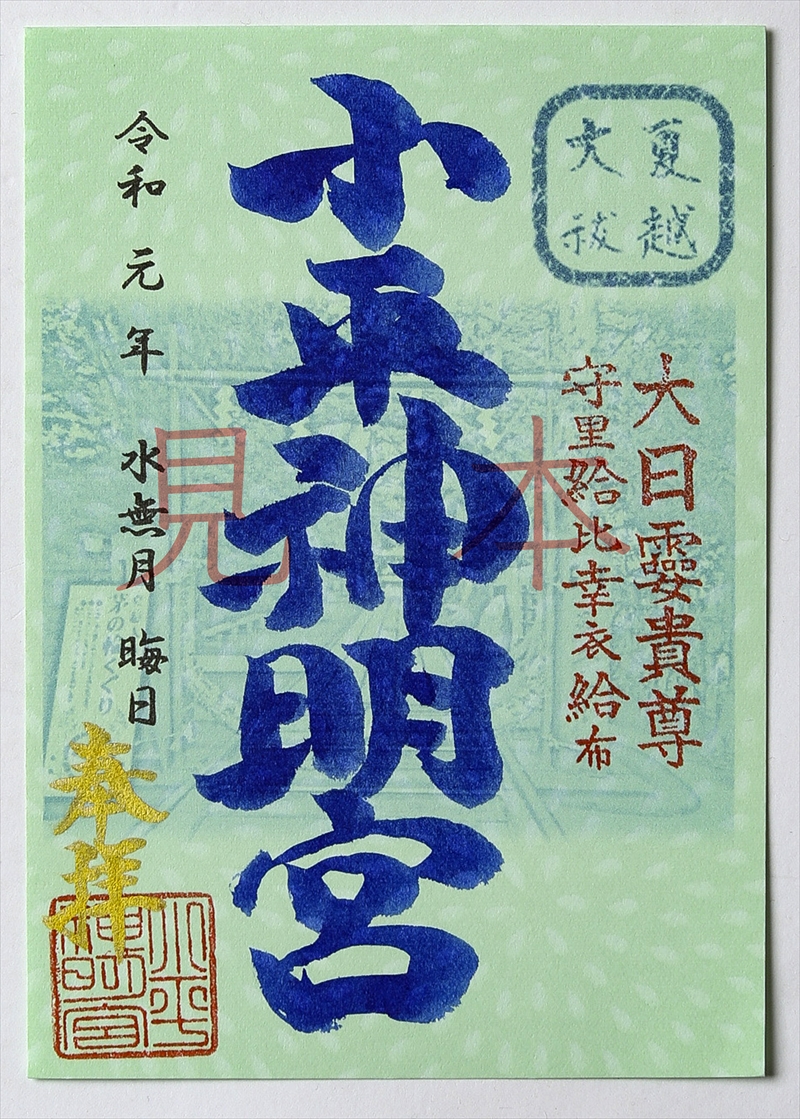 夏越
大祓
大日孁貴尊
守里給比幸衣給布
小平神明宮
見本
令和元年 水無月 晦日
奉拝
小平
神明宮